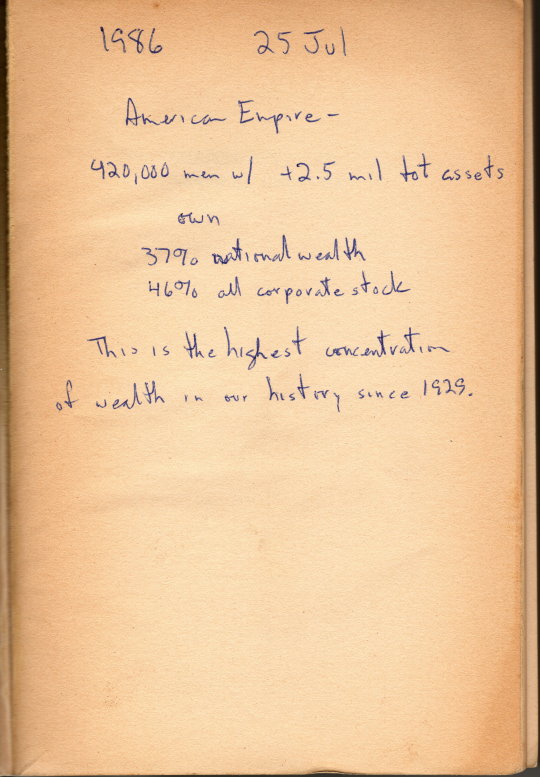 1986 25 Jul
American Empire -
420,000 men w/ +2.5 mil tot assets
own
37% national wealth
46% all corporate stock
This is the highest concentration
of wealth in our history since 1929.